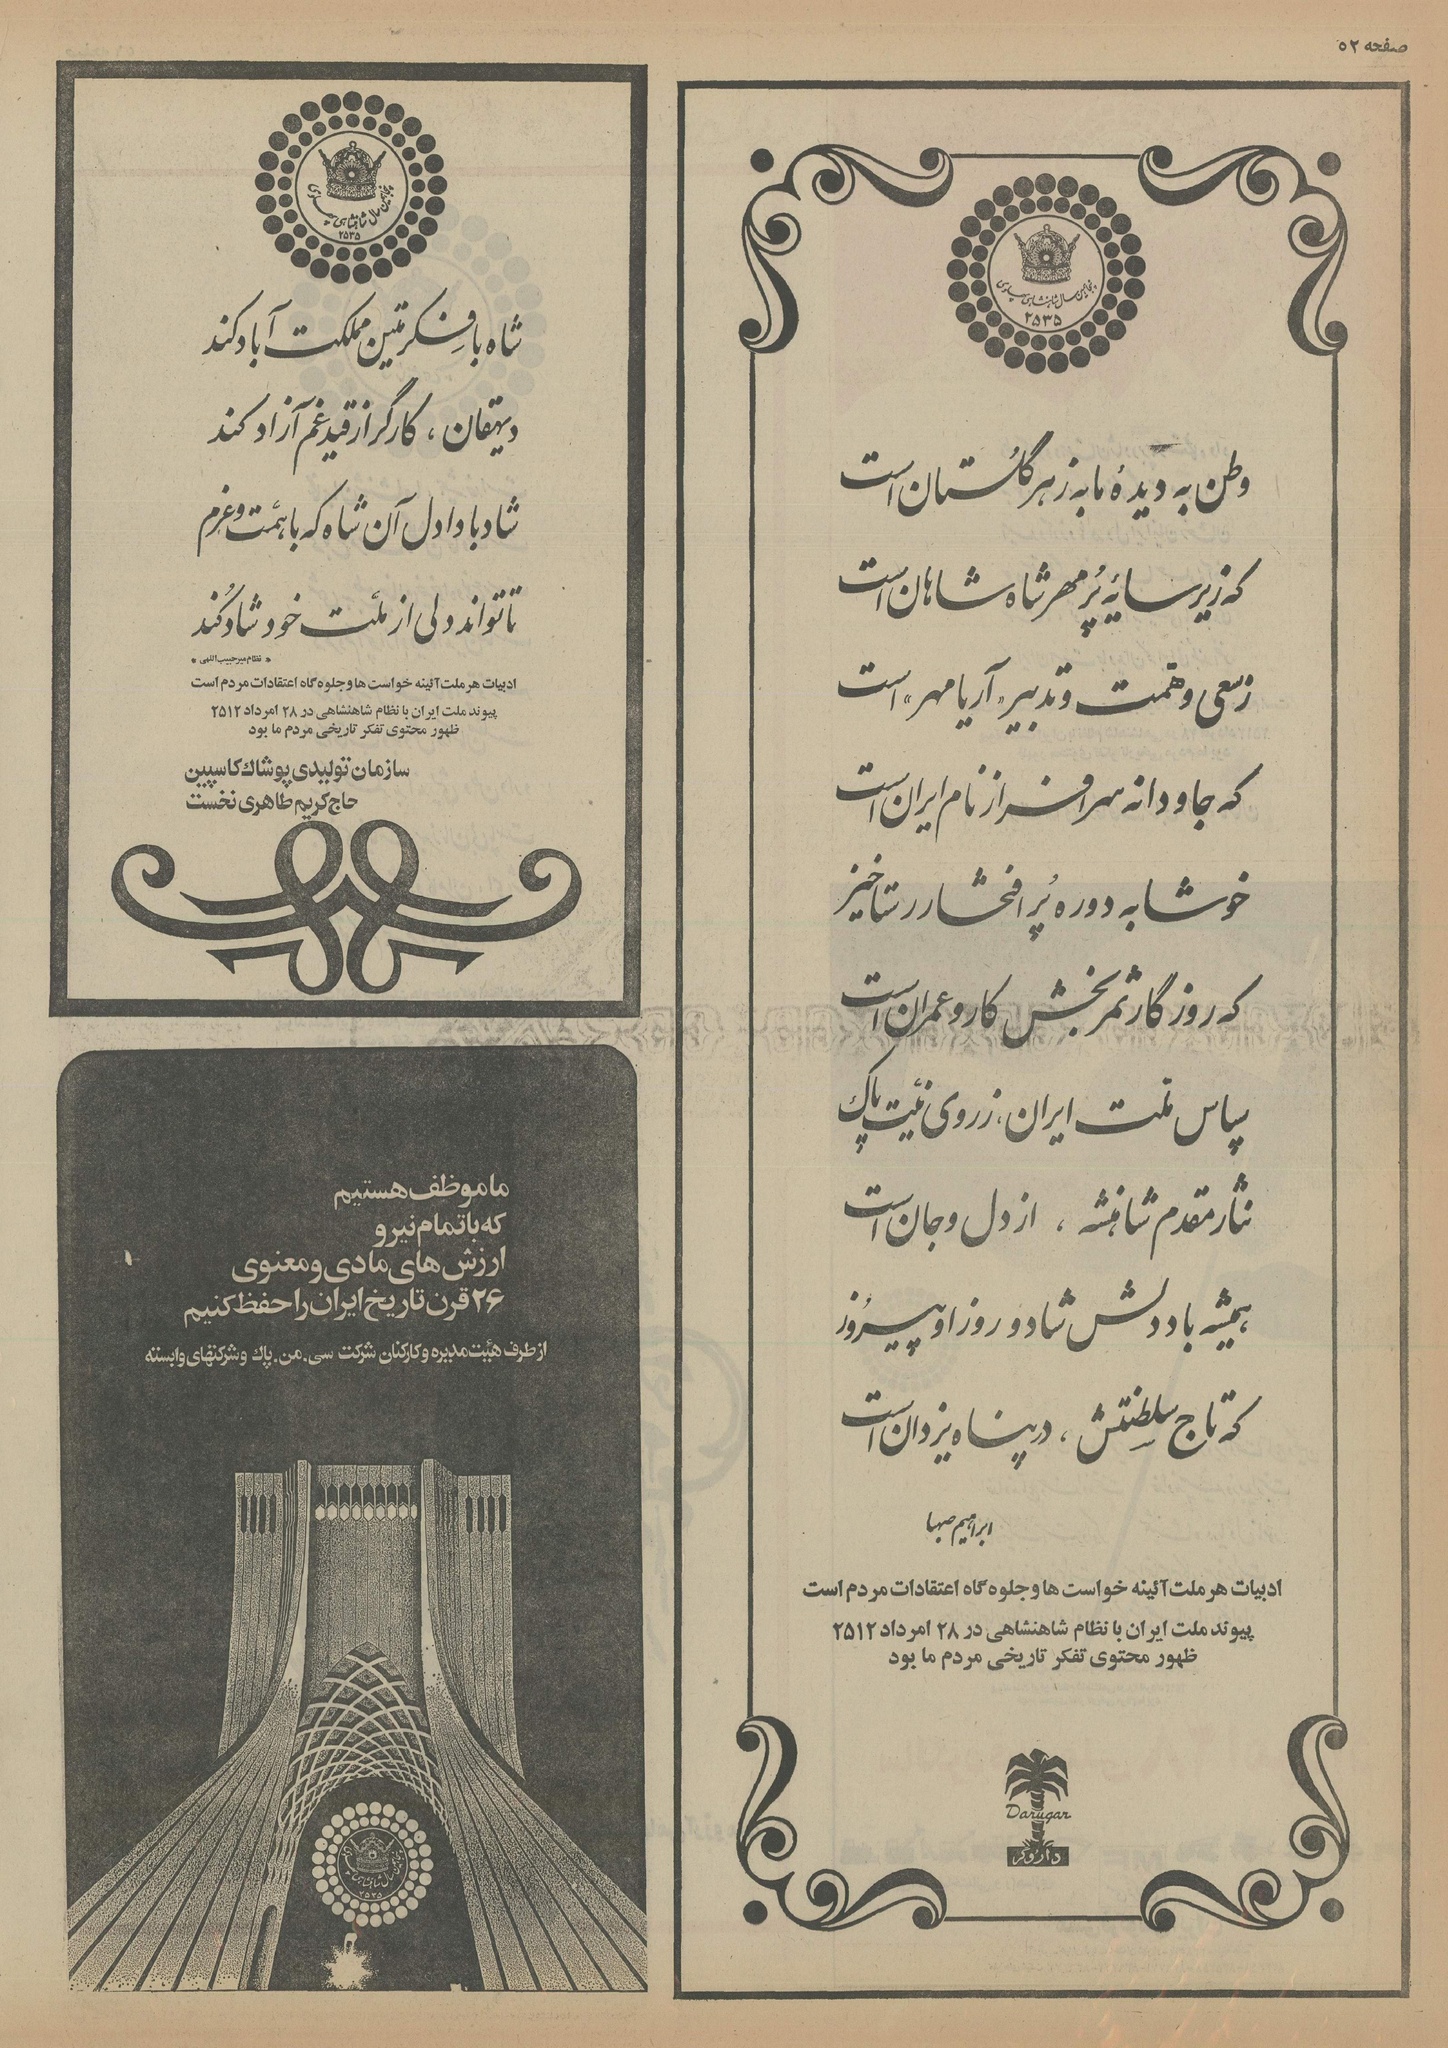 صفحه ۵۲
پنجاهمین سال شاهنشاهی پهلوی
۲۵۳۵
وطن به دیدهٔ ما به ز هر گلستان است
که زیر سایهٔ پُر مهر شاه شاهان است
ز سعی و همت و تدبیر «آریامهر» است
که جاودانه سرافراز نام ایران است
خوشا به دوره پُر افتخار رستاخیز
که روزگار ثمربخش کار و عمران است
سپاس ملت ایران، ز روی نیّت پاک
نثار مقدم شاهنشه ، از دل و جان است
همیشه باد دلش شاد و روز او پیروز
که تاج سلطنتش ، در پناه یزدان است
ابراهیم صهبا
ادبیات هر ملت آئینه خواست ها و جلوه گاه اعتقادات مردم است
پیوند ملت ایران با نظام شاهنشاهی در ۲۸ امرداد ۲۵۱۲
ظهور محتوی تفکر تاریخی مردم ما بود
Darugar
داروگر
پنجاهمین سال شاهنشاهی پهلوی
۲۵۳۵
شاه با فکر متین مملکت آباد کند
دیهقان ، کارگر از قید غم آزاد کند
شاد بادا دل آن شاه که با همّت و عزم
تا تواند دلی از ملّت خود شاد کُند
« نظام میرحبیب‌اللهی »
ادبیات هر ملت آئینه خواست ها و جلوه گاه اعتقادات مردم است
پیوند ملت ایران با نظام شاهنشاهی در ۲۸ امرداد ۲۵۱۲
ظهور محتوی تفکر تاریخی مردم ما بود
سازمان تولیدی پوشاك كاسپین
حاج کریم طاهری نخست
ما موظف هستیم
که با تمام نیرو
ارزش های مادی و معنوی
۲۶ قرن تاریخ ایران را حفظ کنیم
از طرف هیئت مدیره و کارکنان شرکت سی.من.پاك و شرکتهای وابسته
پنجاهمین سال شاهنشاهی پهلوی
۲۵۳۵